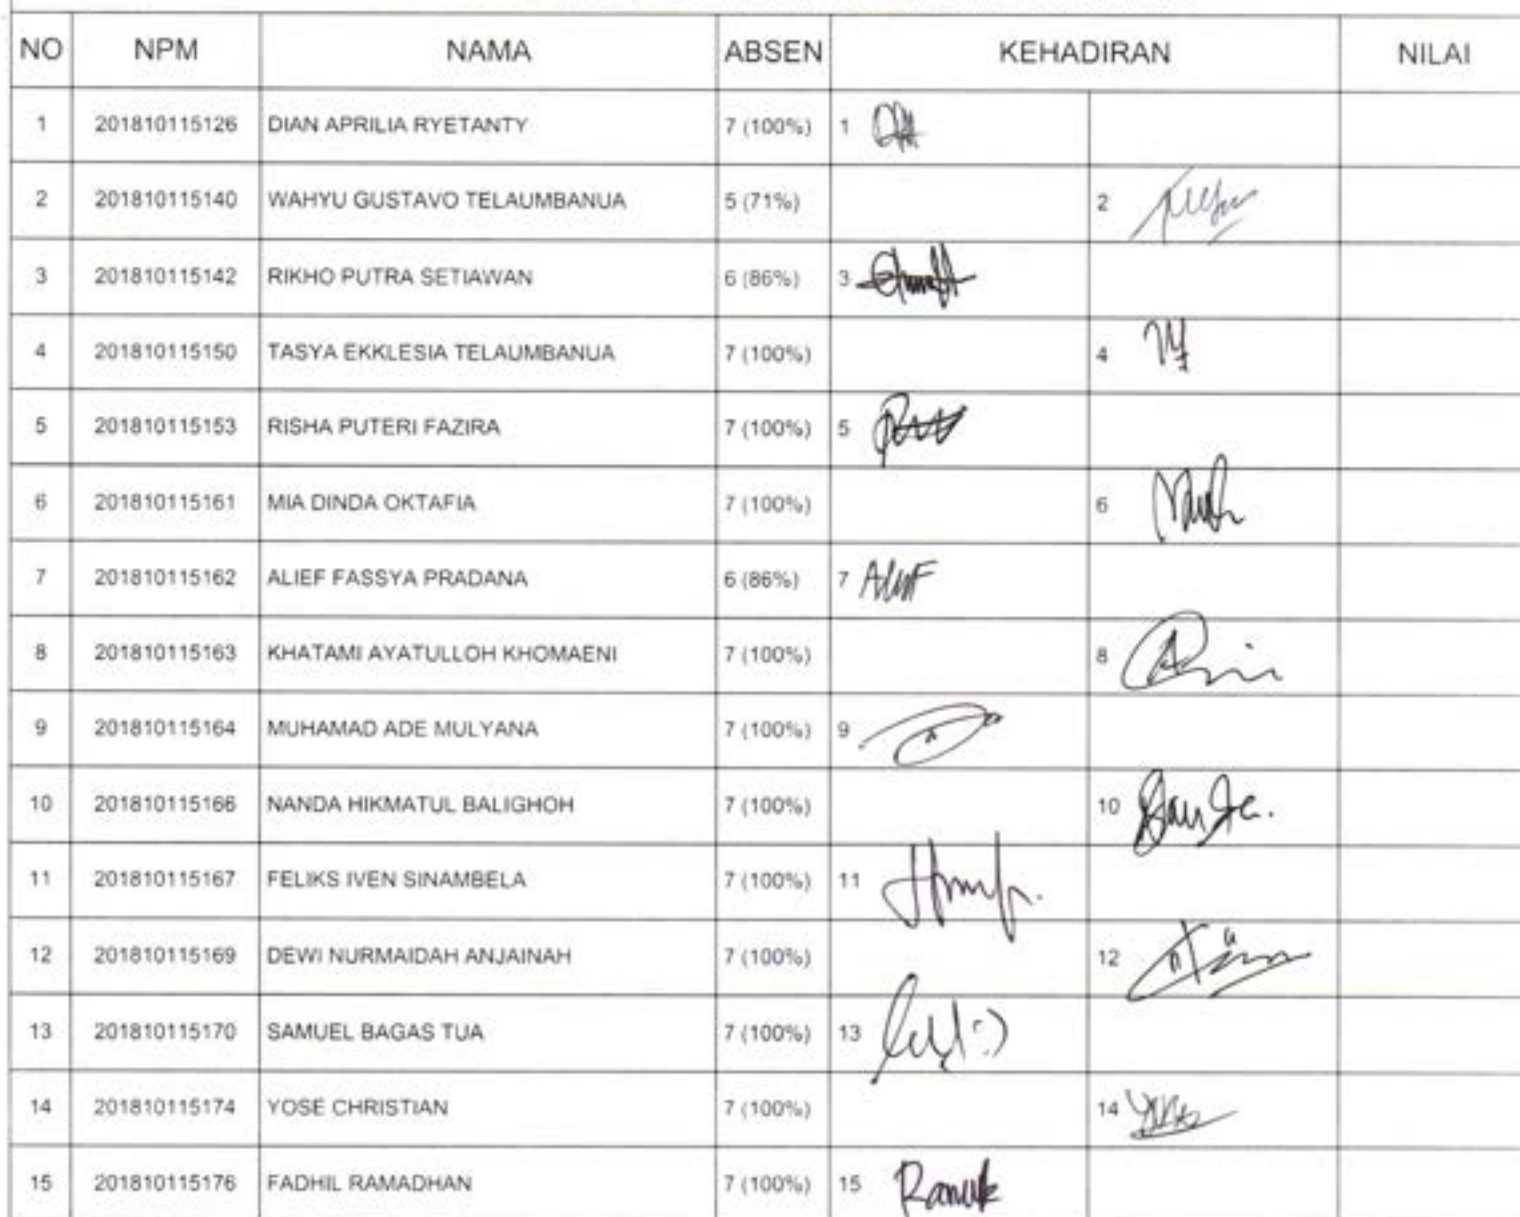 NO NPM NAMA ABSEN KEHADIRAN NILAI
1 201810115126 DIAN APRILIA RYETANTY 7 (100%) 1
2 201810115140 WAHYU GUSTAVO TELAUMBANUA 5 (71%) 2
3 201810115142 RIKHO PUTRA SETIAWAN 6 (86%) 3
4 201810115150 TASYA EKKLESIA TELAUMBANUA 7 (100%) 4
5 201810115153 RISHA PUTERI FAZIRA 7 (100%) 5
6 201810115161 MIA DINDA OKTAFIA 7 (100%) 6
7 201810115162 ALIEF FASSYA PRADANA 6 (86%) 7
8 201810115163 KHATAMI AYATULLOH KHOMAENI 7 (100%) 8
9 201810115164 MUHAMAD ADE MULYANA 7 (100%) 9
10 201810115166 NANDA HIKMATUL BALIGHOH 7 (100%) 10
11 201810115167 FELIKS IVEN SINAMBELA 7 (100%) 11
12 201810115169 DEWI NURMAIDAH ANJAINAH 7 (100%) 12
13 201810115170 SAMUEL BAGAS TUA 7 (100%) 13
14 201810115174 YOSE CHRISTIAN 7 (100%) 14
15 201810115176 FADHIL RAMADHAN 7 (100%) 15